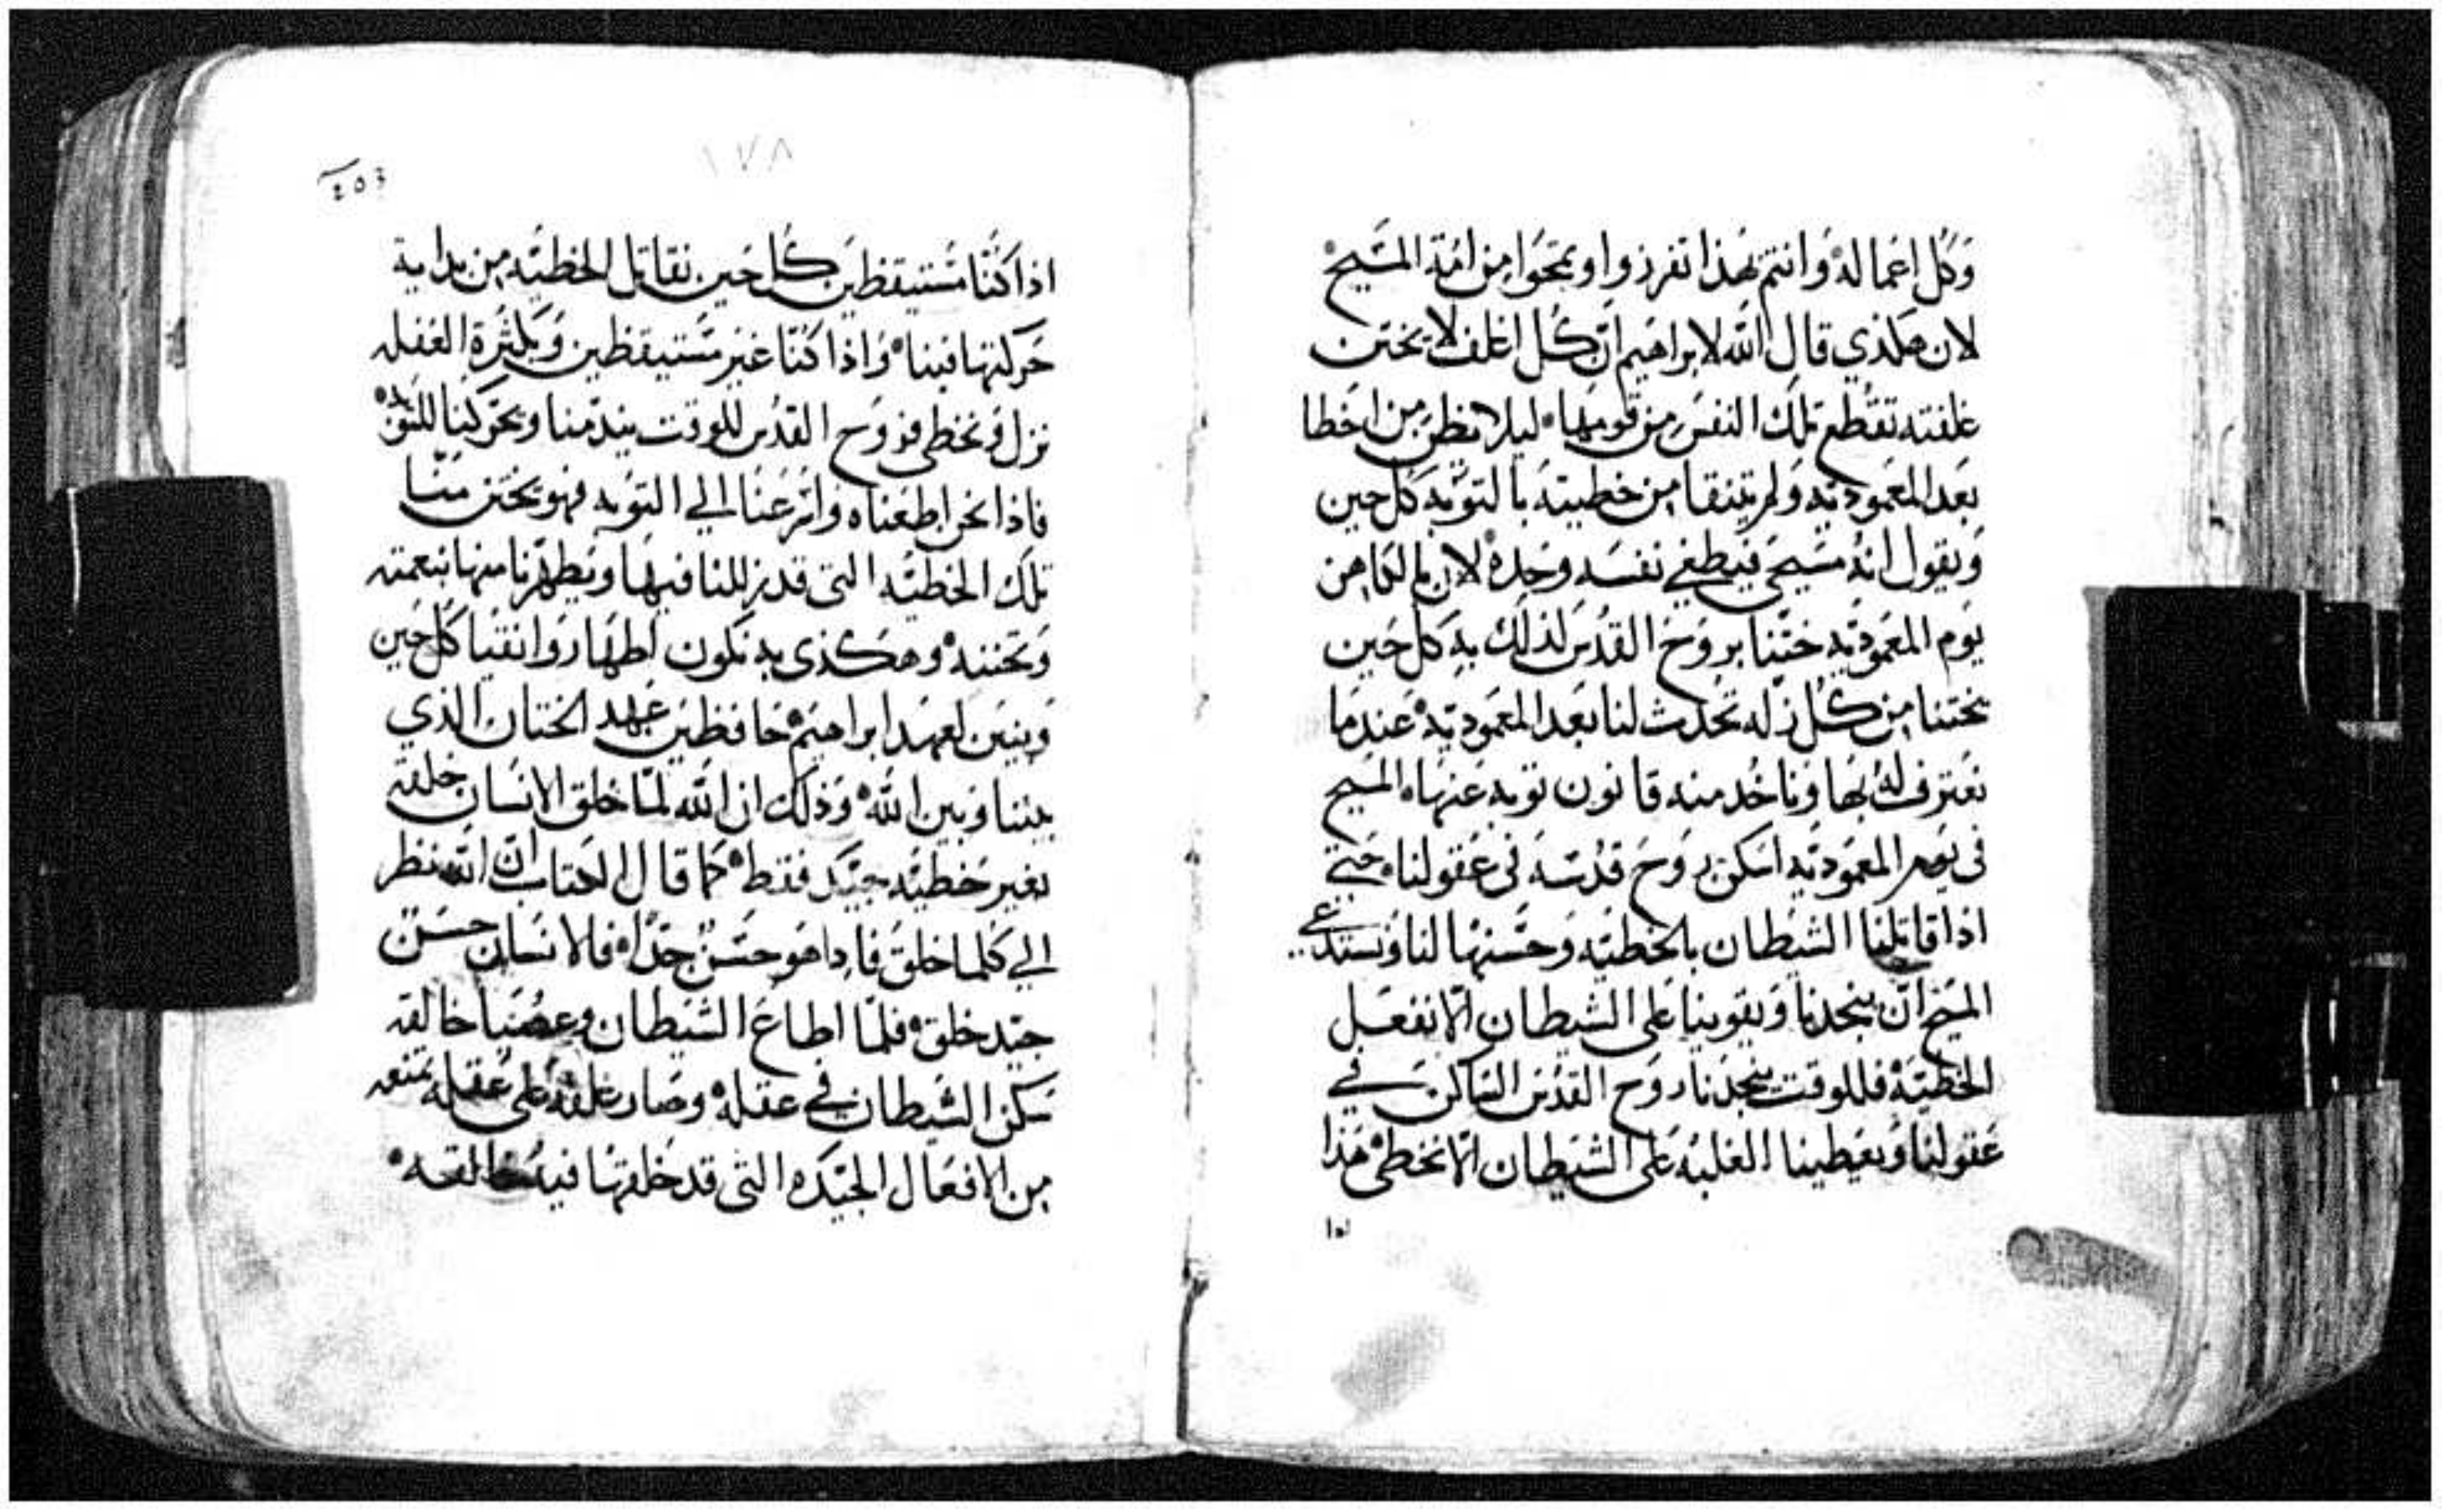 وكل اعماله وانتم بهذا تفرزوا وتمحوا من امة المسيح
لان هكذي قال الله لابراهيم ان كل اغلف لا يختتن
غلفته تقطع تلك النفس من قومها ليلا يظن من اخطا
بعد المعموديه ولم يتنقا من خطيته بالتوبه كل حين
ويقول انه مسيحي فيطغي نفسه وحده لان كاهن
يوم المعموديه ختننا بروح القدس لذلك به كل حين
يختننا من كل زله تحدث لنا بعد المعموديه عندما
نعترف له بها وناخد منه قانون توبه عنها المسيح
في يوم المعموديه اسكن روح قدسه في عقولنا حتي
اذا قاتلنا الشيطان بالخطيه وحسنها لنا ونستدعي
المسيح ان ينجدنا ويقوينا على الشيطان الا نفعل
الخطيه فللوقت ينجدنا روح القدس الساكن في
عقولنا ويعطينا الغلبه على الشيطان الا نخطي هذا
١٧٨
اذا كنا مستيقظين كل حين نقاتل الخطيه من بداية
حركتها فينا واذا كنا غير مستيقظين وبكثرة الغفله
نزل ونخطي فروح القدس للوقت يندمنا ويحركنا للتوبه
فاذا نحن اطعناه واسرعنا الي التوبه فهو يختن منا
تلك الخطيه التي قد زللنا فيها ويطهرنا منها بنعمته
وتحننه وهكذي به نكون اطهار وانقيا كل حين
وبنين لعهد ابراهيم حافظين عهد الختان الذي
بيننا وبين الله وذلك ان الله لما خلق الانسان خلقه
بغير خطيه جيد فقط كما قال الكتاب ان الله نظر
الي كلما خلق فاداهو حسن جدا فالانسان حسن
جيد خلق فلما اطاع الشيطان وعصى خالقه
سكن الشيطان في عقله وصار غلفه على عقله تمنعه
من الافعال الجيده التي قد خلقها فيه خالقه